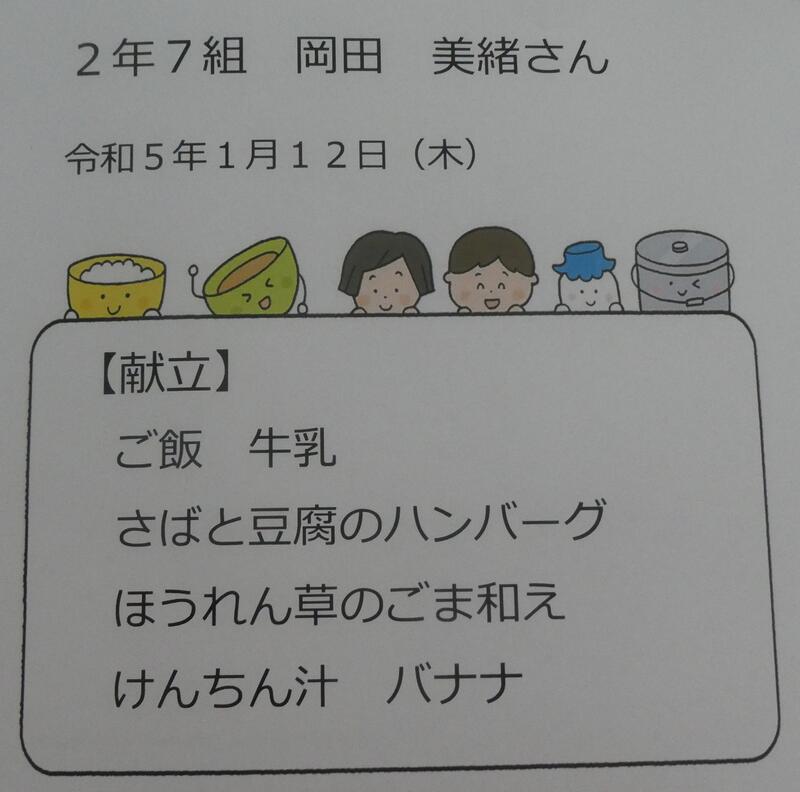 ２年７組　岡田　美緒さん
令和５年１月１２日（木）
【献立】
ご飯　牛乳
さばと豆腐のハンバーグ
ほうれん草のごま和え
けんちん汁　バナナ